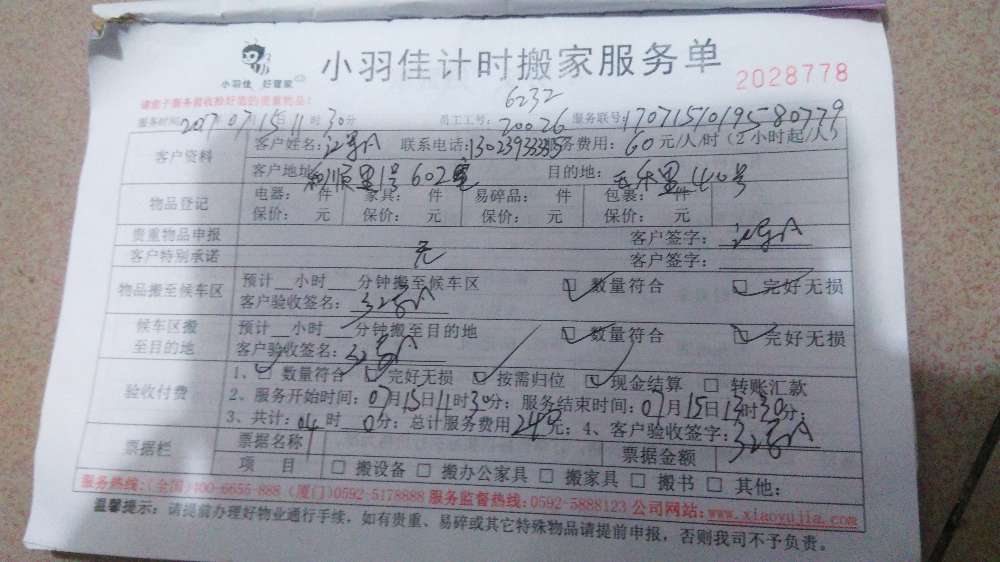 小羽佳计时搬家服务单
小羽佳 好管家
2028778
请您于服务前收捡好您的贵重物品!
6232
服务时间: 2017 07月15日11时30分 员工工号: 20026 服务联号: 170715101958 0779
客户资料
客户姓名: 联系电话: 服务费用: 60元/人/时(2小时起/人)
客户地址: 顺里1号602室 目的地: 里440号
物品登记
电器: 件 家具: 件 易碎品: 件 包裹: 件
保价: 元 保价: 元 保价: 元 保价: 元
贵重物品申报 客户签字:
无
客户特别承诺 客户签字:
物品搬至候车区
预计__小时___分钟搬至候车区 数量符合 完好无损
客户验收签名:
候车区搬至目的地
预计__小时___分钟搬至目的地 数量符合 完好无损
客户验收签名:
验收付费
1、 数量符合 完好无损 按需归位 现金结算 转账汇款
2、服务开始时间: 07月15日11时30分; 服务结束时间: 07月15日13时30分;
3、共计: 04时 0分; 总计服务费用240元; 4、客户验收签字:
票据栏
票据名称 票据金额
项 目 搬设备 搬办公家具 搬家具 搬书 其他:
服务热线:(全国)400-6655-888 (厦门)0592-5178888 服务监督热线:0592-5888123 公司网站:www.xiaoyujia.com
温馨提示: 请提前办理好物业通行手续,如有贵重、易碎或其它特殊物品请提前申报,否则我司不予负责。